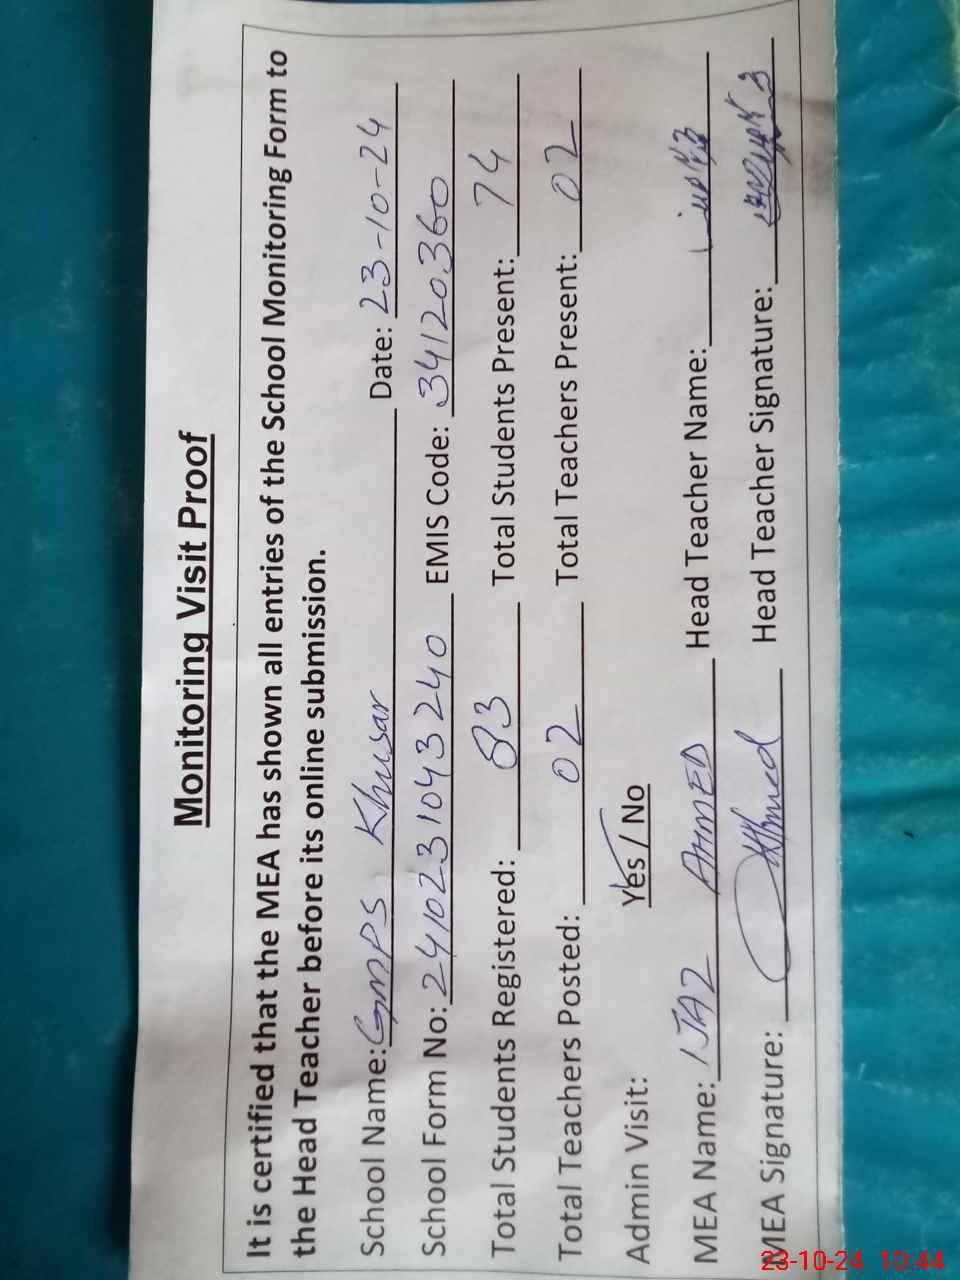 Monitoring Visit Proof
It is certified that the MEA has shown all entries of the School Monitoring Form to
the Head Teacher before its online submission.
School Name: GMPS Khusar Date: 23-10-24
School Form No: 2410231043240 EMIS Code: 34120360
Total Students Registered: 83 Total Students Present: 74
Total Teachers Posted: 02 Total Teachers Present: 02
Admin Visit: Yes / No
MEA Name: IJAZ AHMED Head Teacher Name:
MEA Signature: Ahmed Head Teacher Signature:
23-10-24 10:44